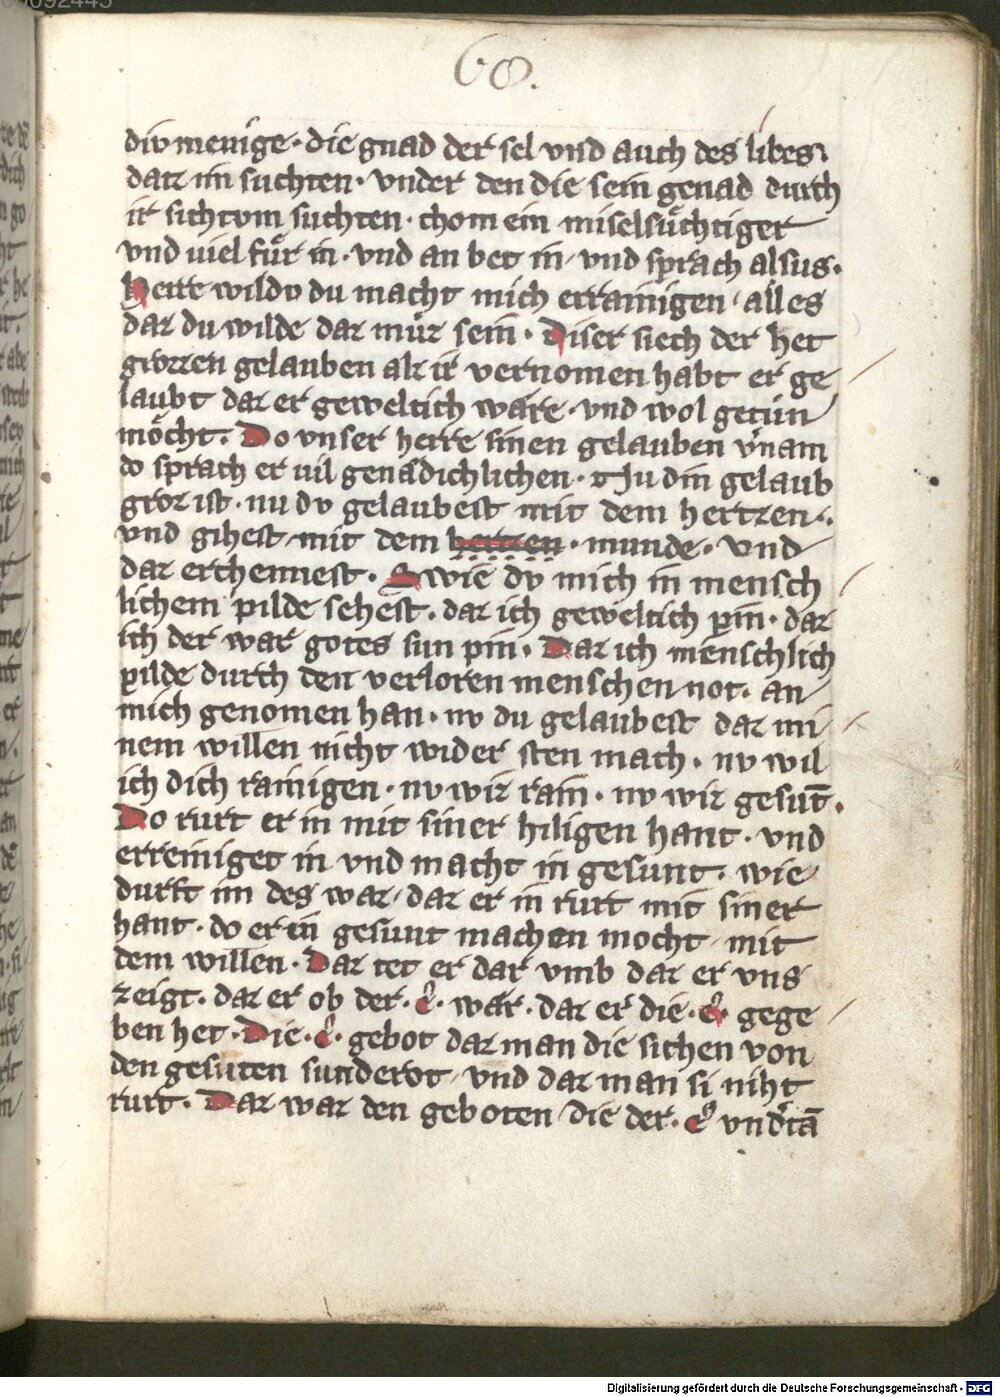 60.
div menige · die gnad der sel vnd auch des libes
datz im suchten · vnder den die sein genad durch
ir sichtvm suchten · chom ein miselsuͤchtiger
vnd viel fuͤr in · vnd an bet in · vnd sprach alsus ·
Herre wildv du macht mich errainigen · alles
daz du wilde daz muͤz sein · Diser siech der het
grozzen gelauben alz ir vernomen habt er ge
laubt daz er geweltich waͤre · vnd wol getuͤn
moͤcht · Do vnser herre sinen gelauben v'nam
do sprach er vil genaͤdichlichen · Thu din gelaub
groz ist · nu dv gelaubest mit dem hertzen ·
vnd gihest mit dem hertzen · munde · vnd
daz erchennest · Swie dv mich in mensch
lichem pilde sehest · daz ich geweltich pin · daz
ich der war gotes sun pin · Daz ich menschlich
pilde durch den verloren menschen not · an
mich genomen han · nv du gelaubest daz mi
nem willen nicht wider sten mach · nv wil
ich dich rainigen · nv wir rain · nv wir gesūt ·
Do rurt er in mit siner hiligen hant · vnd
erreiniget in vnd macht in gesunt · wie
durft im des war · daz er in rurt mit siner
hant · do er in gesunt machen mocht · mit
dem willen · Daz tet er dar vmb daz er vns
zeigt · daz er ob der · e · waͤr · daz er die · e · gege
ben het · Die · e · gebot daz man die sichen von
den gesūten sundervt · vnd daz man si niht
rurt · Daz war den geboten die der · e · vnd'tā
Digitalisierung gefördert durch die Deutsche Forschungsgemeinschaft - DFG